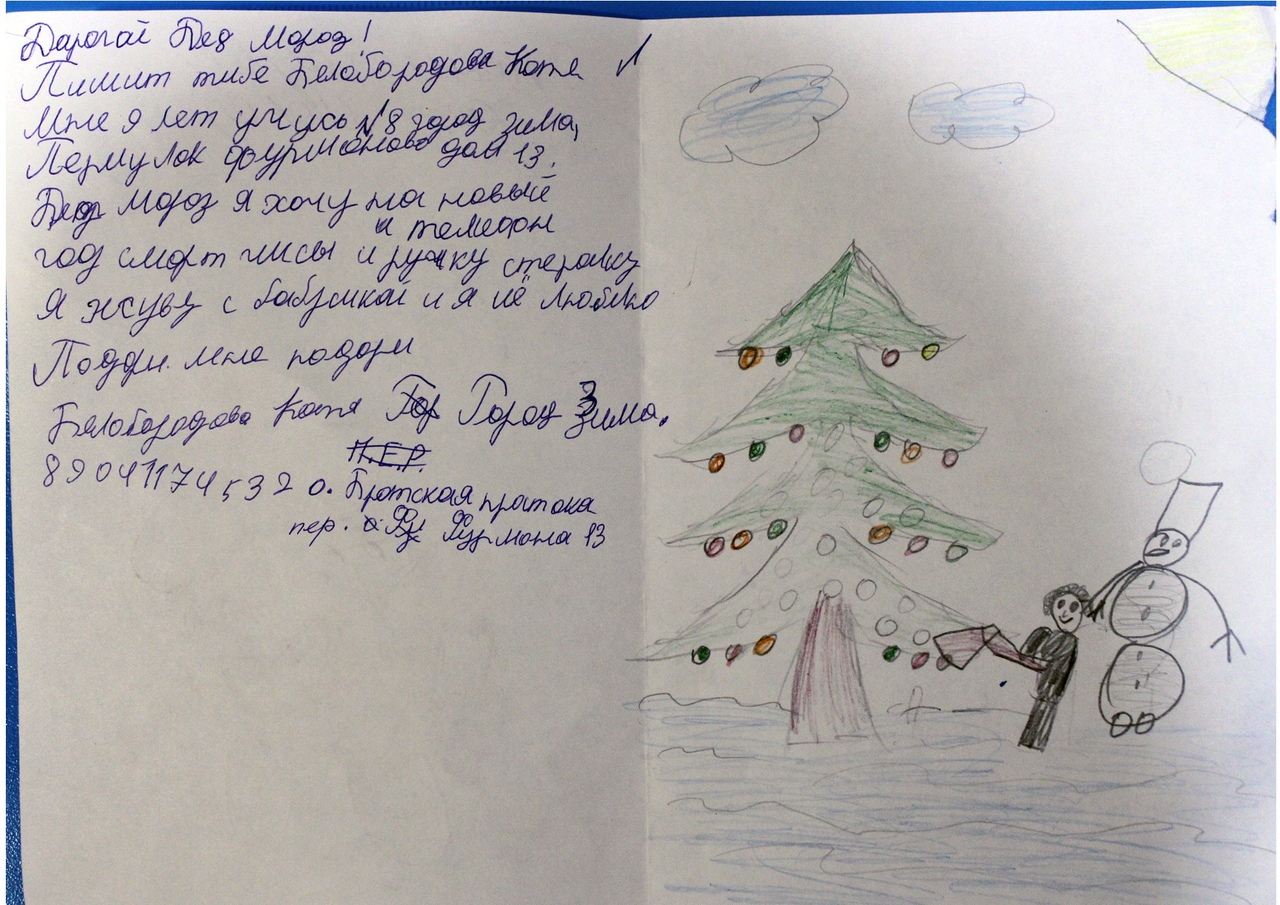 Дарогай Дед Мороз!
Пишит тибе Белобородова Катя
Мне 9 лет учусь №8 город зима,
Периулок фурманова дом 13.
Дед Мороз я хочу на новый
и телефон
год смарт чисы и ручку стералку
Я жуву с бабушкай и я её люблю
мне подари
Белобородова Катя Город Зима.
Н.Е.Р.
89041174532 о. Братская пратока
пер. Фурмана 13